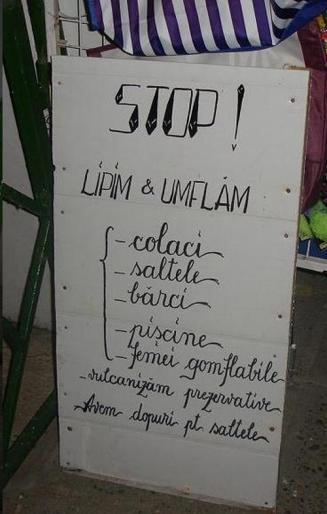 STOP!
LIPIM & UMFLĂM
- colaci
- saltele
- bărci
- piscine
- femei gomflabile
- vulcanizăm prezervative
- Avem dopuri pt. saltele